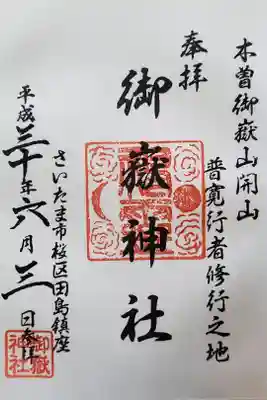 木曽御嶽山開山
普寛行者修行之地
奉拝
御嶽神社
さいたま市桜区田島鎮座
平成三十年六月三日参拝
御嶽
神社